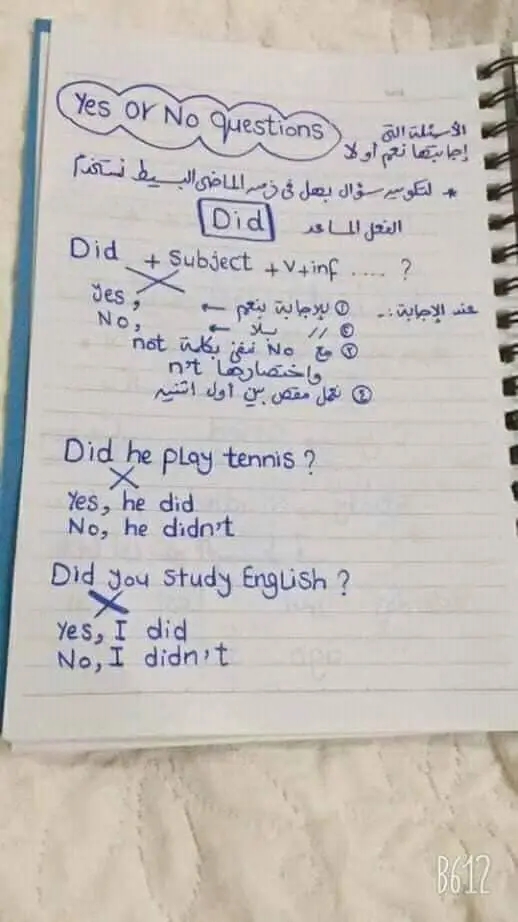 Yes or No questions
الأسئلة التى
إجابتها نعم أو لا
* لتكوين سؤال بهل فى زمن الماضى البسيط نستخدم
الفعل المساعد Did
Did + Subject + v+inf .... ?
عند الإجابة :-
Yes, ← ① للإجابة بنعم
No, ← ② // بلا
③ مع No ننفى بكلمة not
واختصارها n't
④ نعمل مقص بين أول اتنين
Did he play tennis ?
Yes, he did
No, he didn't
Did you study English ?
Yes, I did
No, I didn't
B612